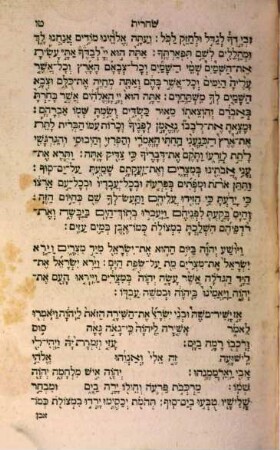 שחרית טו
וּבְיָדְךָ לְגַדֵּל וּלְחַזֵּק לַכֹּל: וְעַתָּה אֱלֹהֵינוּ מוֹדִים אֲנַחְנוּ לָךְ
וּמְהַלְלִים לְשֵׁם תִּפְאַרְתֶּךָ: אַתָּה הוּא יְיָ לְבַדֶּךָ אַתָּ עָשִׂיתָ
אֶת־הַשָּׁמַיִם שְׁמֵי הַשָּׁמַיִם וְכָל־צְבָאָם הָאָרֶץ וְכָל־אֲשֶׁר
עָלֶיהָ הַיַּמִּים וְכָל־אֲשֶׁר בָּהֶם וְאַתָּה מְחַיֶּה אֶת־כֻּלָּם וּצְבָא
הַשָּׁמַיִם לְךָ מִשְׁתַּחֲוִים: אַתָּה הוּא יְיָ הָאֱלֹהִים אֲשֶׁר בָּחַרְתָּ
בְּאַבְרָם וְהוֹצֵאתוֹ מֵאוּר כַּשְׂדִּים וְשַׂמְתָּ שְּׁמוֹ אַבְרָהָם:
וּמָצָאתָ אֶת־לְבָבוֹ נֶאֱמָן לְפָנֶיךָ וְכָרוֹת עִמּוֹ הַבְּרִית לָתֵת
אֶת־אֶרֶץ הַכְּנַעֲנִי הַחִתִּי הָאֱמֹרִי וְהַפְּרִזִּי וְהַיְבוּסִי וְהַגִּרְגָּשִׁי
לָתֵת לְזַרְעוֹ וַתָּקֶם אֶת־דְּבָרֶיךָ כִּי צַדִּיק אָתָּה: וַתֵּרֶא אֶת־
עֳנִי אֲבֹתֵינוּ בְּמִצְרָיִם וְאֶת־זַעֲקָתָם שָׁמַעְתָּ עַל־יַם־סוּף:
וַתִּתֵּן אֹתֹת וּמֹפְתִים בְּפַרְעֹה וּבְכָל־עֲבָדָיו וּבְכָל־עַם אַרְצוֹ
כִּי יָדַעְתָּ כִּי הֵזִידוּ עֲלֵיהֶם וַתַּעַשׂ־לְךָ שֵׁם כְּהַיּוֹם הַזֶּה:
וְהַיָּם בָּקַעְתָּ לִפְנֵיהֶם וַיַּעַבְרוּ בְתוֹךְ־הַיָּם בַּיַּבָּשָׁה וְאֶת־
רֹדְפֵיהֶם הִשְׁלַכְתָּ בִמְצוֹלֹת כְּמוֹ־אֶבֶן בְּמַיִם עַזִּים:
וַיּוֹשַׁע יְהוָֹה בַּיּוֹם הַהוּא אֶת־יִשְׂרָאֵל מִיַּד מִצְרָיִם וַיַּרְא
יִשְׂרָאֵל אֶת־מִצְרַיִם מֵת עַל־שְׂפַת הַיָּם: וַיַּרְא יִשְׂרָאֵל אֶת־
הַיָּד הַגְּדֹלָה אֲשֶׁר עָשָׂה יְהוָֹה בְּמִצְרַיִם וַיִּירְאוּ הָעָם אֶת־
יְהוָֹה וַיַּאֲמִינוּ בַּיהוָֹה וּבְמֹשֶׁה עַבְדּוֹ:
אָז יָשִׁיר־מֹשֶׁה וּבְנֵי יִשְׂרָאֵל אֶת־הַשִּׁירָה הַזֹּאת לַיהוָֹה וַיֹּאמְרוּ
לֵאמֹר אָשִׁירָה לַיהוָֹה כִּי־גָאֹה גָּאָה סוּס
וְרֹכְבוֹ רָמָה בַיָּם: עָזִּי וְזִמְרָת יָהּ וַיְהִי־לִי
לִישׁוּעָה זֶה אֵלִי וְאַנְוֵהוּ אֱלֹהֵי
אָבִי וַאֲרֹמְמֶנְהוּ: יְהוָֹה אִישׁ מִלְחָמָה יְהוָֹה
שְׁמוֹ: מַרְכְּבֹת פַּרְעֹה וְחֵילוֹ יָרָה בַיָּם וּמִבְחַר
שָׁלִשָׁיו טֻבְּעוּ בְיַם־סוּף: תְּהֹמֹת יְכַסְיֻמוּ יָרְדוּ בִמְצוֹלֹת כְּמוֹ־
אבן